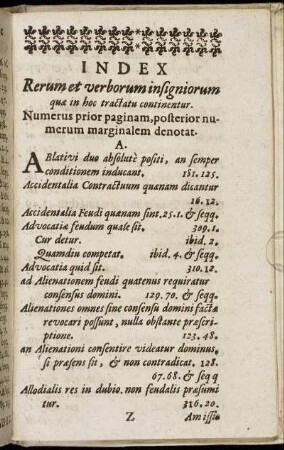 INDEX
Rerum et verborum insigniorum
quæ in hoc tractatu continentur.
Numerus prior paginam, posterior nu-
merum marginalem denotat.
A.
ABlativi duo absolutè positi, an semper
conditionem inducant. 181. 125.
Accidentalia Contractuum quænam dicantur
16. 12.
Accidentalia Feudi quænam sint. 25. 1. & seqq.
Advocatiæ feudum quale sit. 309. 1.
Cur detur. ibid. 2.
Quamdiu competat. ibid. 4. & seqq.
Advocatia quid sit. 310. 12.
ad Alienationem feudi quatenus requiratur
consensus domini. 129. 70. & seqq.
Alienationes omnes sine consensū domini factæ
revocari possunt, nulla obstante præscri-
ptione. 123. 48.
an Alienationi consentire videatur dominus,
si præsens sit, & non contradicat. 128.
67. 68. & seq
Allodialis res in dubio non feudalis præsumi
tur. 316. 20.
Z Amissio